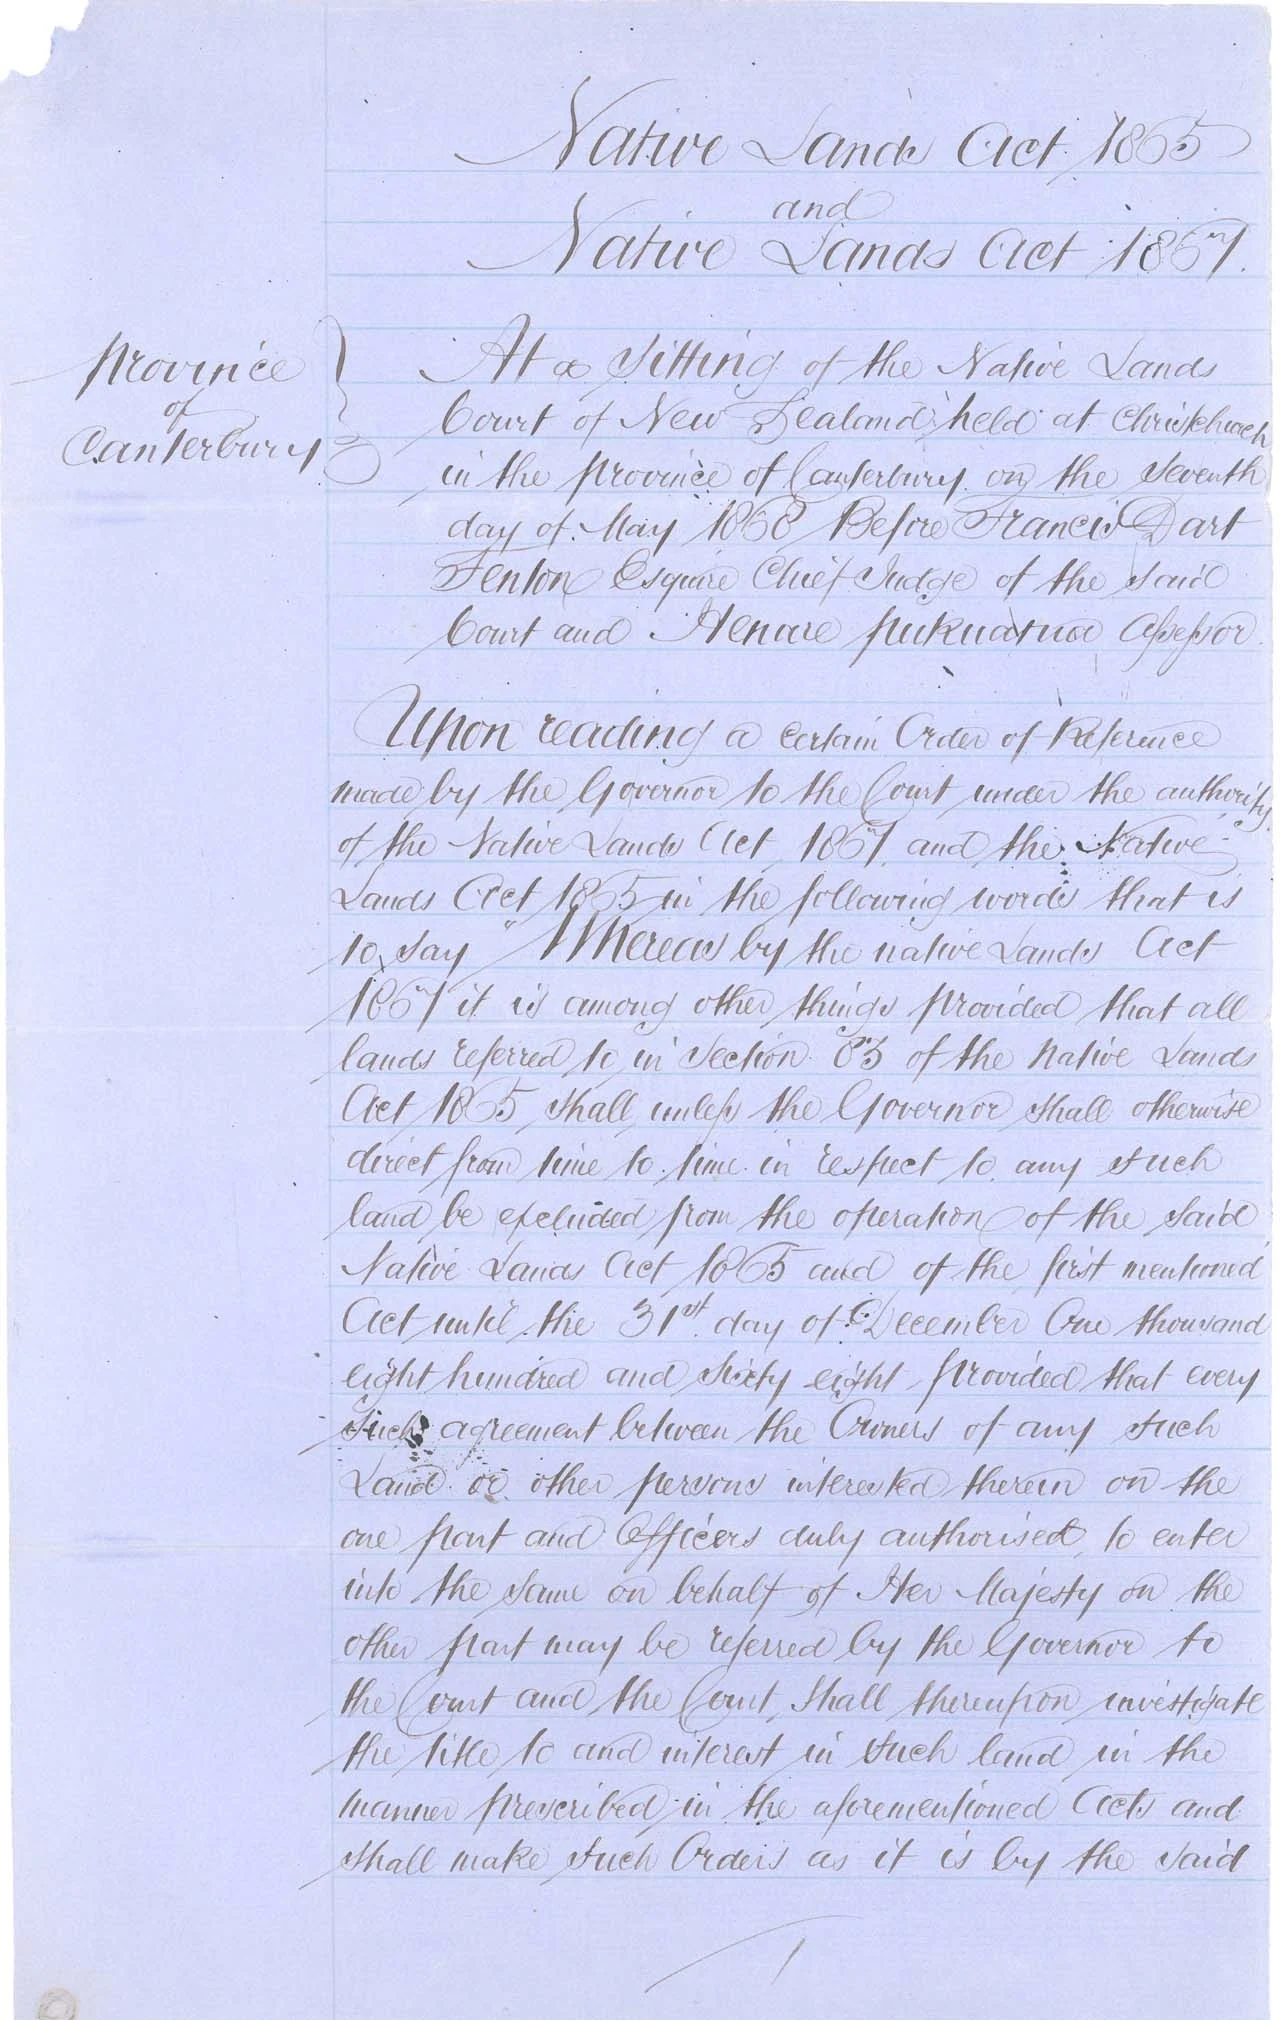 Native Lands Act 1865
and
Native Lands Act 1867.
Province
of
Canterbury
At a Sitting of the Native Lands
Court of New Zealand held at Christchurch
in the Province of Canterbury on the Seventh
day of May 1868 Before Francis Dart
Fenton Esquire Chief Judge of the said
Court and Henare Pukuatua Assessor
Upon reading a certain Order of Reference
made by the Governor to the Court under the authority
of the Native Lands Act 1867 and the Native
Lands Act 1865 in the following words that is
to say "Whereas by the native Lands Act
1867 it is among other things provided that all
lands referred to in Section 83 of the Native Lands
Act 1865 shall unless the Governor shall otherwise
direct from time to time in respect to any such
land be excluded from the operation of the said
Native Lands Act 1865 and of the first mentioned
Act until the 31st day of December One thousand
eight hundred and sixty eight provided that every
such agreement between the Owners of any such
Land or other persons interested therein on the
one part and Officers duly authorised to enter
into the same on behalf of Her Majesty on the
other part may be referred by the Governor to
the Court and the Court shall thereupon investigate
the title to and interest in such land in the
manner prescribed in the aforementioned Acts and
shall make such Orders as it is by the said
1